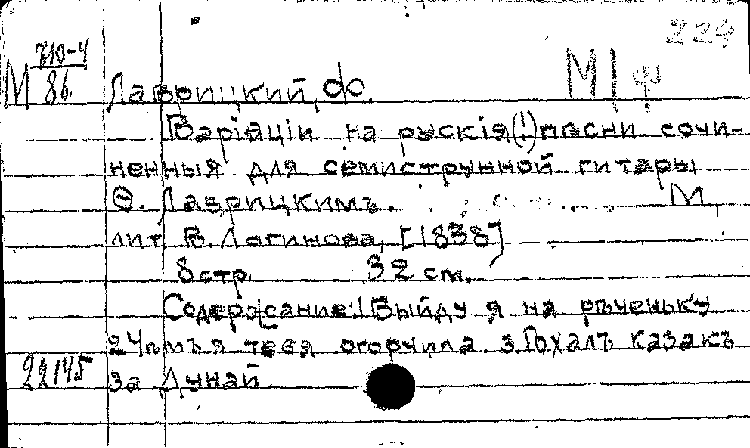 224
710-4
М 86. Лаврицкий, Ф.
М1ф
Варіаціи на рускія (!) пѣсни сочи-
ненныя для семиструнной гитары
Ѳ. Лаврицкимъ. М.
лит. В. Логинова, [1838]
8 стр. 32 см.
Содержание: 1 Выйду я на рѣченьку
2 Чѣмъ я тебя огорчила 3. Поѣхалъ казакъ
22145 за Дунай